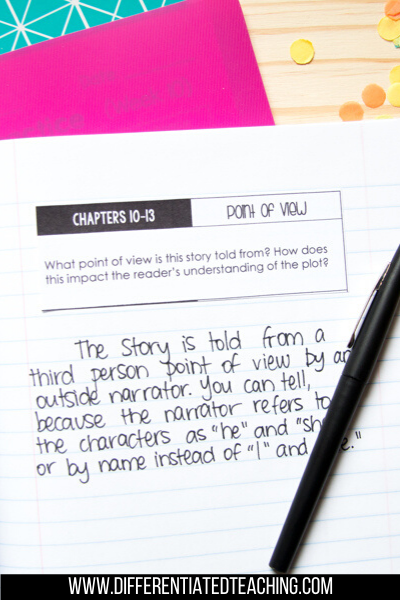 CHAPTERS 10-13
POINT OF VIEW
What point of view is this story told from? How does
this impact the reader's understanding of the plot?
The Story is told from a
third person point of view by an
outside narrator. You can tell,
because the narrator refers to
the characters as "he" and
or by name instead of "I" and
WWW.DIFFERENTIATEDTEACHING.COM